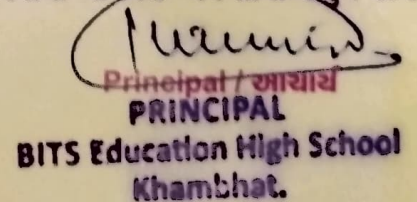 Principal / આચાર્ય
PRINCIPAL
BITS Education High School
Khambhat.